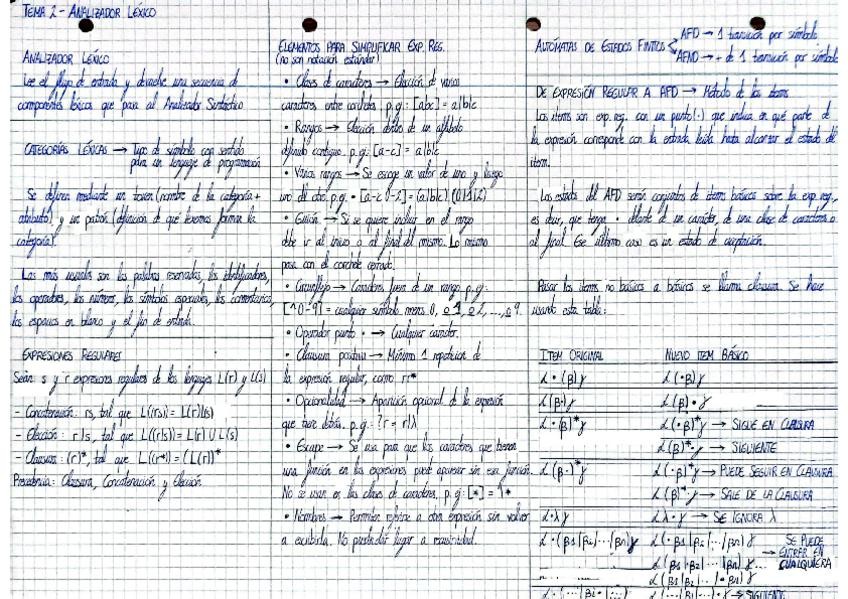 TEMA 2 - ANALIZADOR LÉXICO
ANALIZADOR LÉXICO
Lee el flujo de entrada y devuelve una secuencia de
componentes léxicos que para al Analizador Sintáctico
CATEGORÍAS LÉXICAS → Tipo de símbolo con sentido
para un lenguaje de programación
Se definen mediante un token (nombre de la categoría +
atributo) y un patrón (definición de qué lexemas forman la
categoría).
Las más usuales son las palabras reservadas, los identificadores,
los operadores, los números, los símbolos especiales, los comentarios,
los espacios en blanco y el fin de entrada.
EXPRESIONES REGULARES
Sean s y r expresiones regulares de los lenguajes L(r) y L(s)
- Concatenación: rs, tal que L((rs)) = L(r)L(s)
- Elección: r|s, tal que L((r|s)) = L(r) U L(s)
- Clausura: (r)*, tal que L((r*)) = (L(r))*
Precedencia: Clausura, Concatenación y Elección
ELEMENTOS PARA SIMPLIFICAR EXP. REG.
(no son notación estándar)
• Clases de caracteres → Elección de varios
caracteres entre corchetes. p.g: [abc] = a|b|c
• Rangos → Elección dentro de un alfabeto
definido contiguo. p.g: [a-c] = a|b|c
• Varios rangos → Se escoge un valor de uno y luego
uno del otro. p.g. [a-c 0-2] = (a|b|c) (0|1|2)
• Guión → Si se quiere incluir en el rango
debe ir al inicio o al final del mismo. Lo mismo
pasa con el corchete cerrado.
• Circunflejo → Caracteres fuera de un rango. p.g:
[^0-9] = cualquier símbolo menos 0, o 1, o 2, ..., o 9.
• Operador punto • → Cualquier carácter.
• Clausura positiva → Mínimo 1 repetición de
la expresión regular, como rr*
• Opcionalidad → Aparición opcional de la expresión
que tiene detrás. p.g.: ?r = r|λ
• Escape → Se usa para que los caracteres que tienen
una función en las expresiones puedan aparecer sin esa función.
No se usan en las clases de caracteres, p.g: [*] = \*
• Nombres → Permiten referirse a otra expresión sin volver
a escribirla. No puede dar lugar a recursividad.
AUTÓMATAS DE ESTADOS FINITOS
AFD → 1 transición por símbolo
AFND → + de 1 transición por símbolo
DE EXPRESIÓN REGULAR A AFD → Método de los ítems
Los ítems son exp. reg. con un punto (·) que indica en qué parte de
la expresión corresponde con la entrada leída hasta alcanzar el estado del
ítem.
Los estados del AFD serán conjuntos de ítems básicos sobre la exp. reg.,
es decir, que tenga • delante de un carácter, de una clase de caracteres o
al final. Ese último caso es un estado de aceptación.
Pasar los ítems no básicos a básicos se llama clausura. Se hace
usando esta tabla:
ITEM ORIGINAL NUEVO ITEM BÁSICO
α • (β)γ α(•β)γ
α(β•)γ α(β)•γ
α•(β)*γ α(•β)*γ → SIGUE EN CLAUSURA
α(β)*•γ → SIGUIENTE
α(β•)*γ α(•β)*γ → PUEDE SEGUIR EN CLAUSURA
α(β)*•γ → SALE DE LA CLAUSURA
α•λγ αλ•γ → SE IGNORA λ
α•(β1|β2|...|βn)γ α(•β1|β2|...|βn)γ SE PUEDE
α(β1|•β2|...|βn)γ... → ENTRAR EN
CUALQUIERA
α(β1|β2|...|•βn)γ
SIGUIENTE